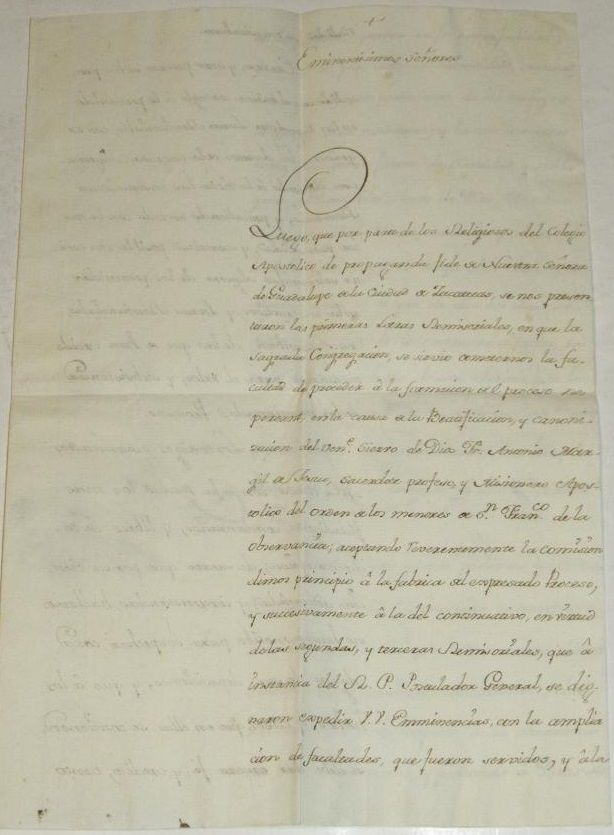 Eminentisimos Señores
Luego, que por parte de los Religiosos del Colegio
Apostolico de propaganda fide de Nuestra Señora
de Guadalupe de la Ciudad de Zacatecas, se nos presen
taron las primeras Letras Remisoriales, en que la
Sagrada Congregacion, se sirvio cometernos la fa-
cultad de proceder â la formacion del proceso ne
pereant, en la causa de la Beatificacion, y canoni-
zacion del Ven.e Siervo de Dios Fr. Antonio Mar-
gil de Jesus, Sacerdote profeso, y Misionero Apos-
tolico del orden de los menores de S.n Fran.co de la
Observancia; aceptando reverentemente la comision
dimos principio â la fabrica del expresado Proceso,
y succesivamente â la del continuativo, en virtud
de las segundas, y terceras Remisoriales, que â
instancia del R. P. Postulador General, se dig-
naron expedir V.V. Emminencias, con la amplia
cion de facultades, que fueron servidos, y â la